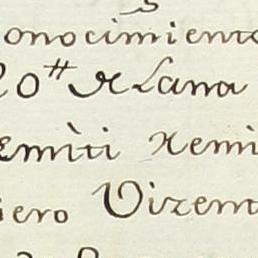 onocimiento
20# de Lana
emiti remi
iero Vizent